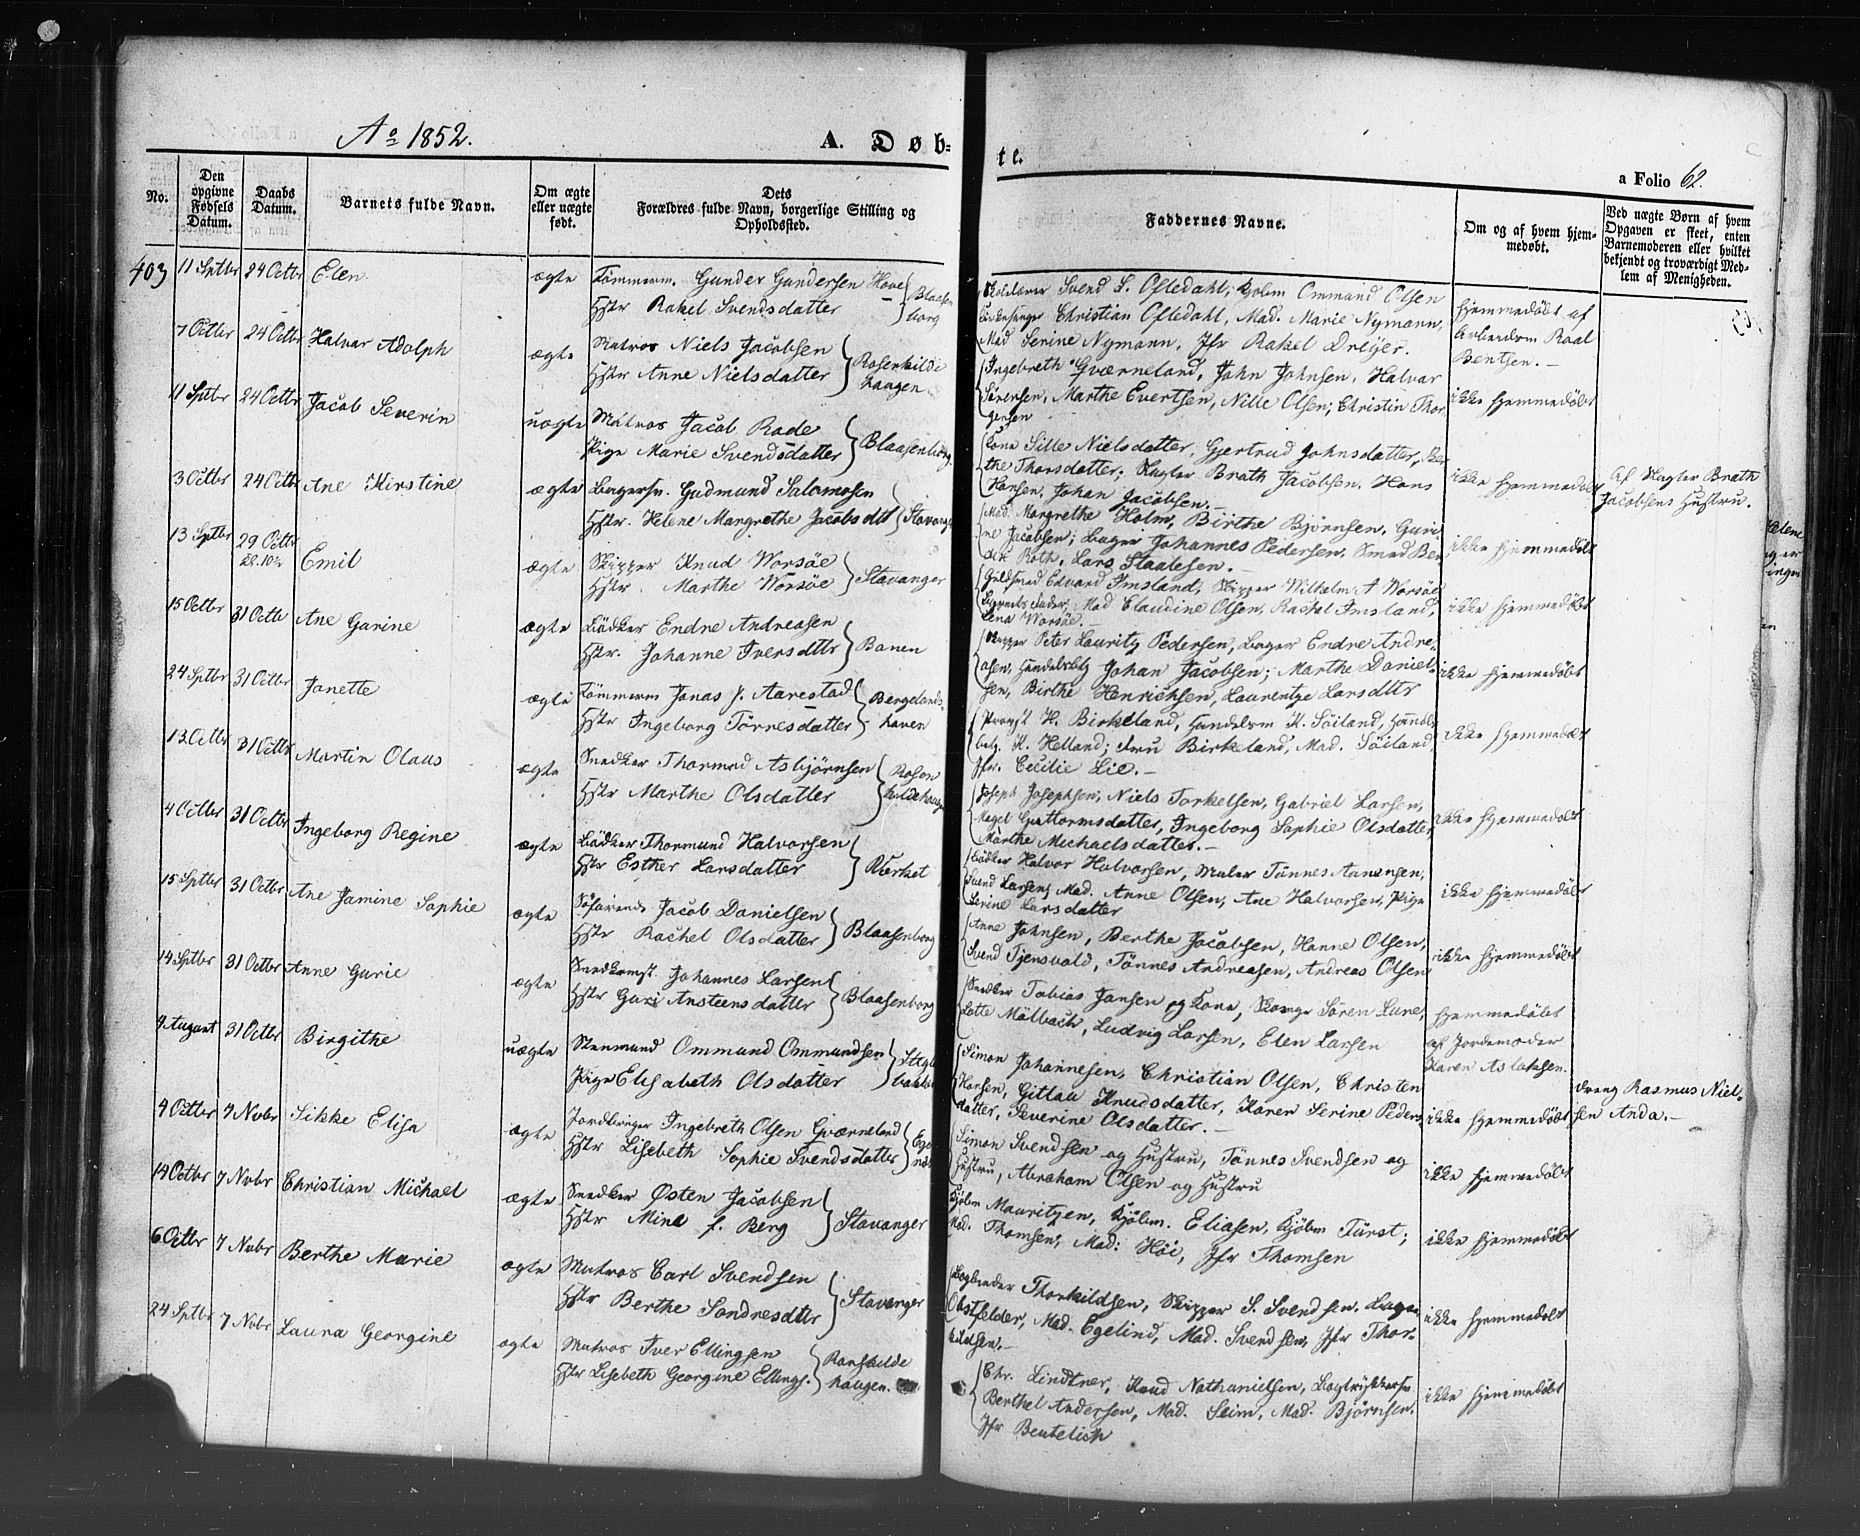 Ao 1852.
A. Døb-
te.
a Folio 62.
No.
Den opgivne Fødsels Datum.
Daabs Datum.
Barnets fulde Navn.
Om ægte eller uægte født.
Dets Forældres fulde Navn, borgerlige Stilling og Opholdssted.
Faddernes Navne.
Om og af hvem hjemmedøbt.
Ved uægte Børn af hvem Opgaven er skeet, enten Barnemoderen eller hvilket bekjendt og troværdigt Medlem af Menigheden.
403 11 Sptbr 24 Octbr Elen ægte Tømmerm. Gunder Gundersen Hove
Hstr Rakel Svendsdatter Blaasenborg
Svend S. Ofledahl, Kjøbm Ommund Olsen
Christian Ofledahl, Mad. Marie Nymann,
Mad Serine Nymann, Jfr Rakel Dreijer.
hjemmedøbt af
Arbeidsm Roal
Bentsen.
7 Octbr 24 Octbr Halvar Adolph ægte Matros Niels Jacobsen
Hstr Anne Nielsdatter Rosenkilde haugen
Ingebreth Gværneland, John Johnsen, Halvar
Sørensen, Marthe Evertsen, Nille Olsen, Christin Thorgersen
ikke hjemmedøbt
11 Sptbr 24 Octbr Jacob Severin uægte Matros Jacob Rode
Pige Marie Svendsdatter Blaasenborg
Kone Sille Nielsdatter, Gjertrud Johnsdatter, Berthe
Thorsdatter; Slagter Brath Jacobsen, Hans
Hansen, Johan Jacobsen.
ikke hjemmedøbt
Af Slagter Brath
Jacobsens Hustru.
3 Octbr 24 Octbr Ane Kirstine ægte Bagersv. Gudmund Salomosen
Hstr. Helene Margrethe Jacobsdtt Stavanger
Mad. Margrethe Holm, Birthe Bjørnsen, Gurine
Jacobsen; Bager Johannes Pedersen, Smed Bendix
Roth, Lars Staalesen.
ikke hjemmedøbt
13 Sptbr 29 Octbr Emil ægte Skipper Knud Worsöe
Hstr. Marthe Worsöe Stavanger
Guldsmed Edvard Imsland, Skipper Wilhelm A Worsöe
Barnets Fader, Mad Claudine Olsen, Rachel Imsland,
Lena Worsöe.
ikke hjemmedøbt
15 Octbr 31 Octb Ane Garine ægte Bödker Endre Andreasen
Hstr. Johanne Iversdttr Banen
Skipper Peter Lauritz Pedersen, Bager Endre Andreasen,
Handelsbtj Johan Jacobsen; Marthe Danielsen,
Birthe Henrichsen, Laurentze Larsdttr
ikke hjemmedøbt
24 Sptbr 31 Octbr Janette ægte Tømmerm Jonas J. Aarestad
Hstr Ingeborg Tørresdatter Bergelands haven
Provst H. Birkeland, Handelsm K. Söiland, Handels
betj. K. Helland; Fru Birkeland, Mad. Söiland,
Jfr. Cecilie Lie.
ikke hjemmedøbt
13 Octbr 31 Octbr Martin Olaus ægte Snedker Thormod Asbjørnsen
Hstr Marthe Olsdatter Rosenkildehaugen
Joseph Josephsen, Niels Torkelsen, Gabriel Larsen,
Magel Guttormsdatter, Ingeborg Sophie Olsdatter
Marthe Michaelsdatter.
ikke hjemmedøbt
4 Octbr 31 Octbr Ingeborg Regine ægte Bödker Thormund Halvorsen
Hstr Esther Larsdatter Værket
Bödker Halvor Halvorsen, Maler Tønnes Aanensen,
Svend Larsen; Mad. Anne Olsen, Ane Halvorsen, Pige
Serine Larsdatter
ikke hjemmedøbt
15 Sptbr 31 Octbr Ane Jamine Sophie ægte Söfarende Jacob Danielsen
Hstr Rachel Olsdatter Blaasenborg
Anne Johnsen, Berthe Jacobsen, Hanne Olsen,
Svend Tjensvold, Tönnes Andreasen, Andreas Olsen
ikke hjemmedøbt
14 Sptbr 31 Octbr Anne Gurie ægte Snedkermst. Johannes Larsen
Hstr Guri Ansteensdatter Blaasenborg
Snedker Tobias Jansen og Kone, Søren Lune,
Lotte Mølbach, Ludvig Larsen, Elen Larsen
hjemmedøbt
af Jordemoder
Karen Aslaksen.
4 August 31 Octbr Birgithe uægte Steenmand Ommund Ommundsen
Pige Elisabeth Olsdatter
Simon Johannesen, Christian Olsen, Christen
Hansen, Gitlau Knudsdatter, Karen Serine Peders
datter, Severine Olsdatter.
ikke hjemmedøbt
Dreng Rasmus Nielsen
Anda.
4 Octbr 7 Nvbr Sikke Elisa ægte Jordbruger Ingebreth Olsen Gværneland
Hstr Lisebeth Sophie Svendsdatter
Simon Svendsen og Hustru, Tønnes Svendsen og
Hustru, Abraham Olsen og Hustru
ikke hjemmedøbt
14 Octbr 7 Nvbr Christian Michael ægte Snedker Østen Jacobsen
Hstr Mine f. Berg Stavanger
Kjøbm Mauritzen, Kjøbm. Eliasen, Kjøbm Fürst;
Mad. Thomsen, Mad: Høi, Jfr Thomsen
ikke hjemmedøbt
6 Octbr 7 Nvbr Berthe Marie ægte Matros Carl Svendsen
Hstr Berthe Sondresdttr Stavanger
Bogbinder Thorkildsen, Skipper S. Svendsen, Bager
Obstfelder, Mad. Egelind, Mad. Svendsen, Jfr Thorkildsen.
ikke hjemmedøbt
24 Sptbr 7 Nvbr Laura Georgine ægte Matros Iver Ellingsen
Hstr Lisebeth Georgine Ellings. Rosenkilde haugen.
Chr. Lindtner, Knud Nathanielsen, Bogtrykkersv.
Berthel Andersen, Mad. Seim, Mad. Bjørnsen.
Jfr Bentelich
ikke hjemmedøbt